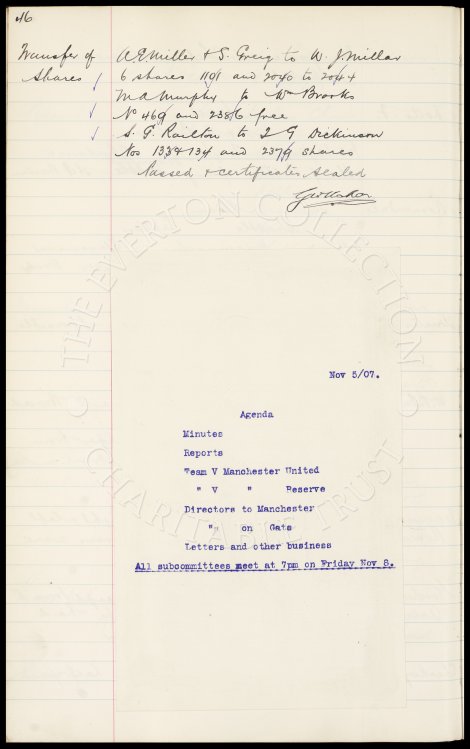 46
Transfer of Shares
A E Miller & S. Greig to W. J Millar
6 shares 1101 and 2040 to 2044
M A Murphy to Wm Brooks
No 469 and 2386 free
S. G. Railton to J G Dickinson
Nos 133 & 134 and 2379 shares
Passed & certificates sealed
THE EVERTON COLLECTION
CHARITABLE TRUST
Nov 5/07.
Agenda
Minutes
Reports
Team V Manchester United
" V " Reserve
Directors to Manchester
" on Gate
Letters and other business
All subcommittees meet at 7pm on Friday Nov 8.